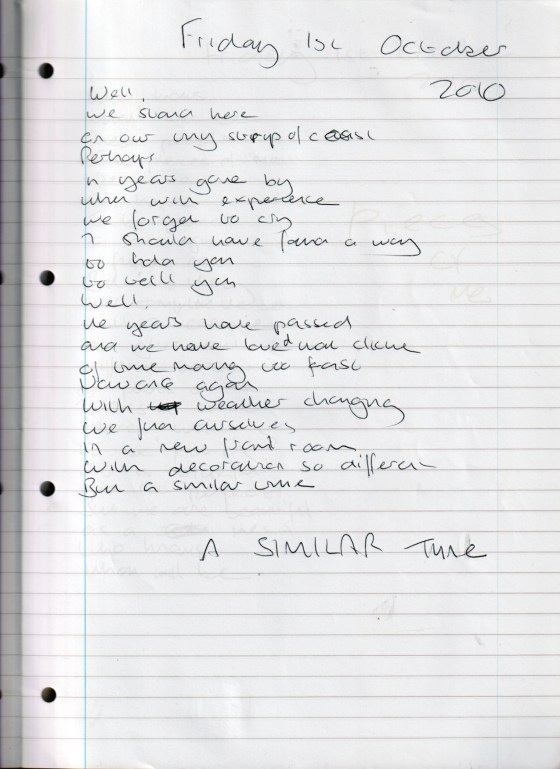 Friday 1st October
2010
Well,
we stand here
on our tiny strip of coast
Perhaps
in years gone by
when with experience
we forget to cry
I should have found a way
to hold you
to tell you
Well,
the years have passed
and we have loved that cliche
of time moving too fast
Now once again
With weather changing
We find ourselves
In a new front room
With decoration so different
But a similar tune
A SIMILAR TUNE